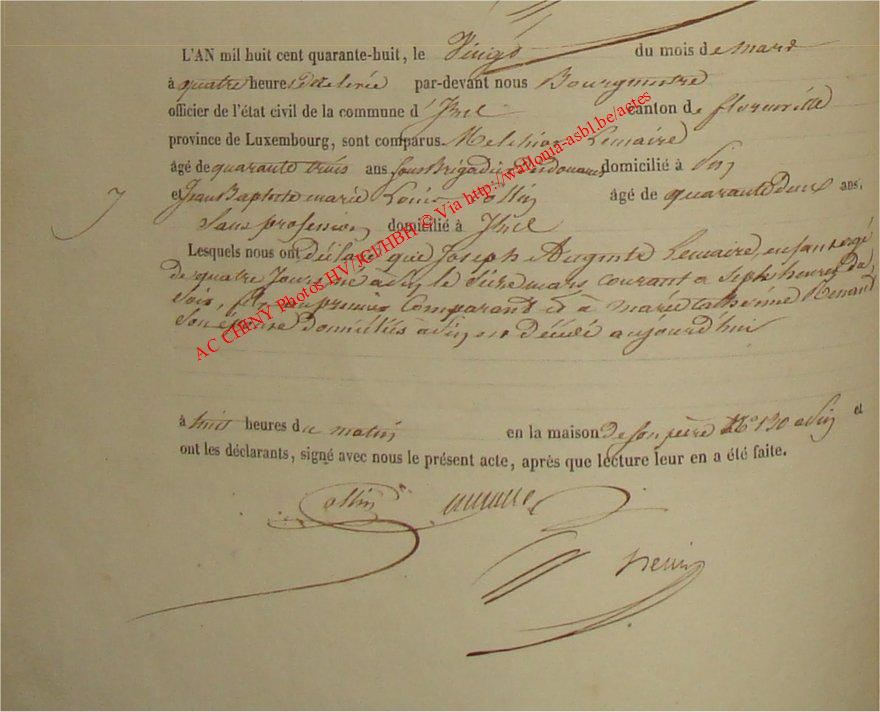 L'AN mil huit cent quarante-huit, le Vingt du mois de mars
à quatre heures de relevée par-devant nous Bourgmestre
officier de l'état civil de la commune d'Izel canton de florenville
province de Luxembourg, sont comparus Melchior Lemaire
âgé de quarante trois ans Sous Brigadier des douanes domicilié à Pin
7 et Jean Baptiste marie Louis Collin âgé de quarante deux ans,
Sans profession domicilié à Izel
Lesquels nous ont déclaré que Joseph Auguste Lemaire, enfant agé
de quatre Jours né à Pin, le Seize mars courant a Sept heures du
Soir, fils du premier Comparant et à marie Catherine Renaud
Son épouse domiciliés à Pin, est décédé aujourd'hui
à huit heures du matin en la maison de son père N° 130 à Pin et
ont les déclarants, signé avec nous le présent acte, après que lecture leur en a été faite.
Collin Lemaire
AC CHINY Photos HV/JCI/HBH © Via http://wallonia-asbl.be/actes